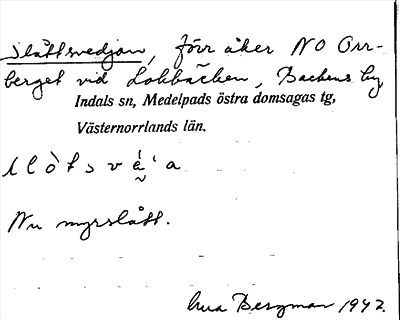 Slåttsvedjan, förr åker NO Orr-
berget vid Lobbäcken, Backens by,
Indals sn, Medelpads östra domsagas tg,
Västernorrlands län.
Nu myrslått.
Bergman 1942.